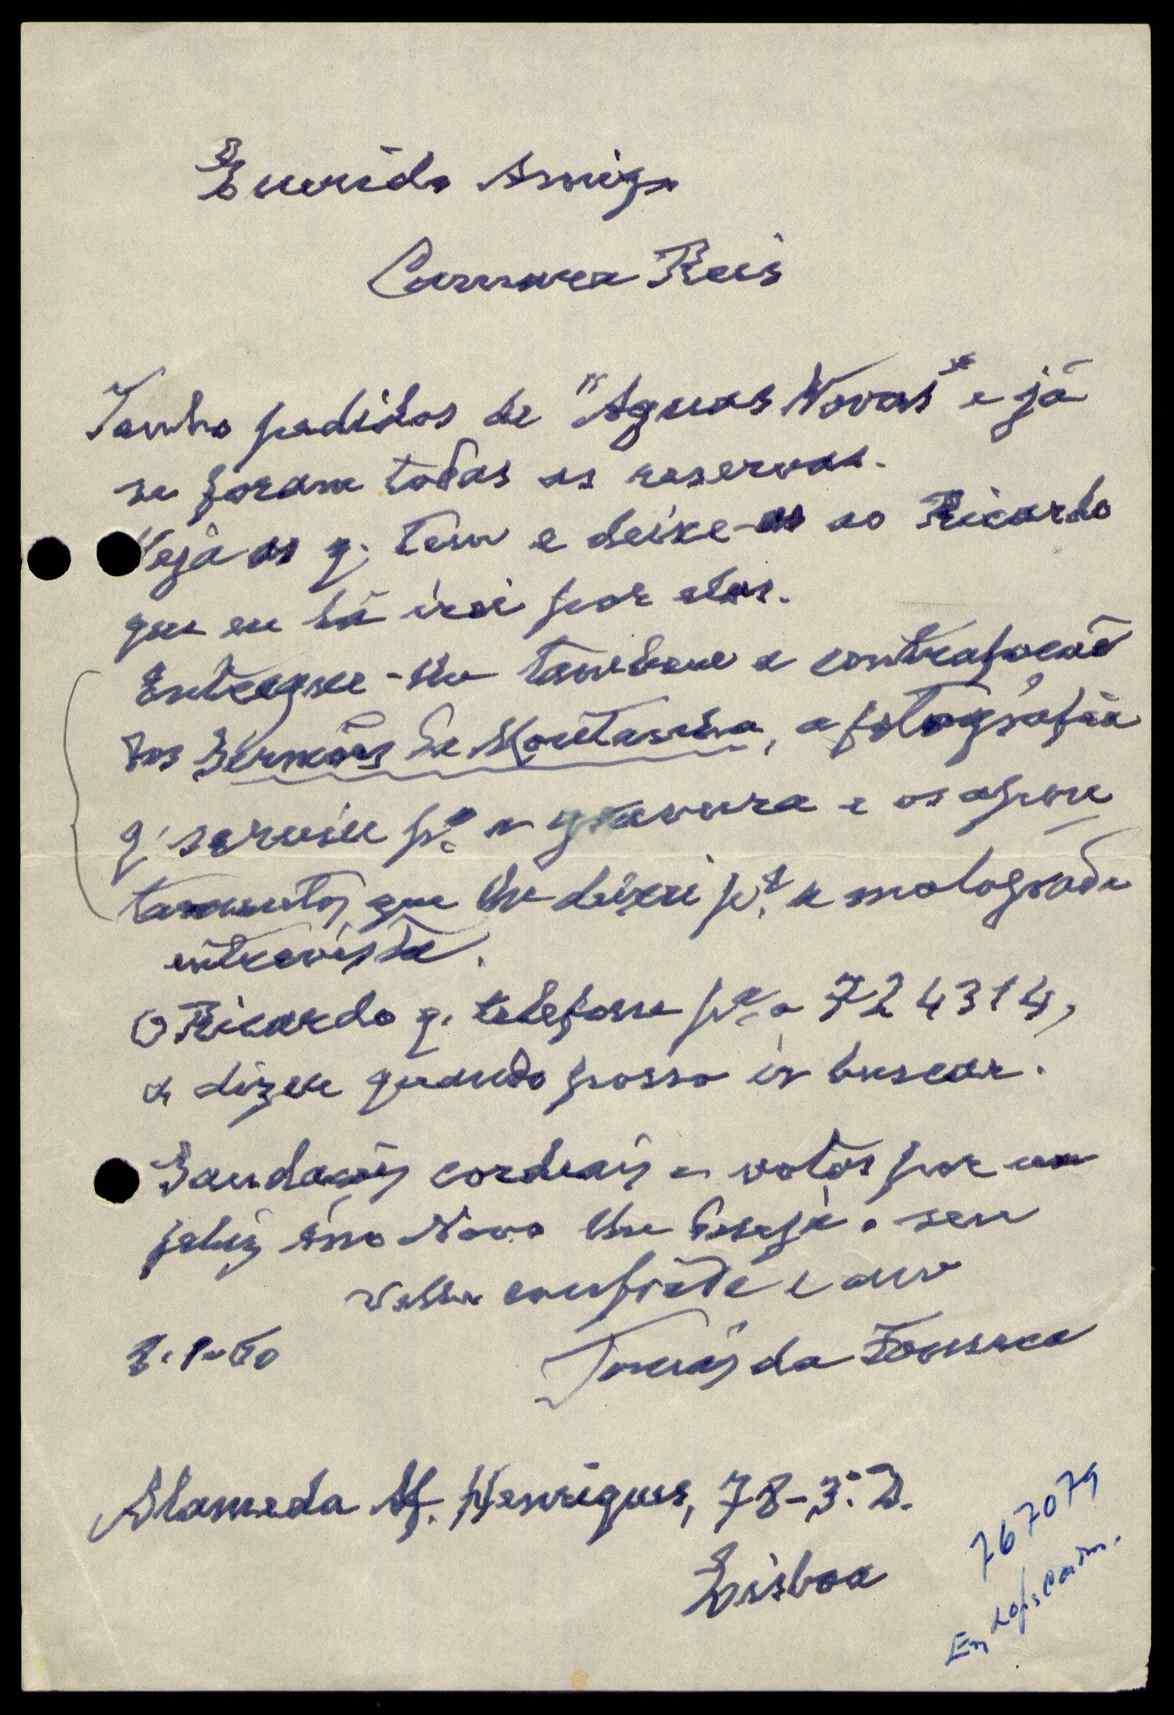 Querido Amigo
Camara Reis
Tenho pedidos de "Aguas Novas" e já
se foram todas as reservas.
Veja as q. tem e deixe-as ao Ricardo
que eu lá irei por elas.
Entregue-lhe tambem a contrafacão
dos Sermões da Montanha, a fotografia
q. serviu pª a gravura e os apon
tamentos que lhe deixei pª a malograda
entrevista.
O Ricardo q. telefone pª o 724314,
a dizer quando posso ir buscar.
Saudações cordeais e votos por um
feliz Ano Novo lhe deseja o seu
velho confrade e amº
2-1-60 Tomás da Fonseca
Alameda Af. Henriques, 78-3º D.
Lisboa
767079